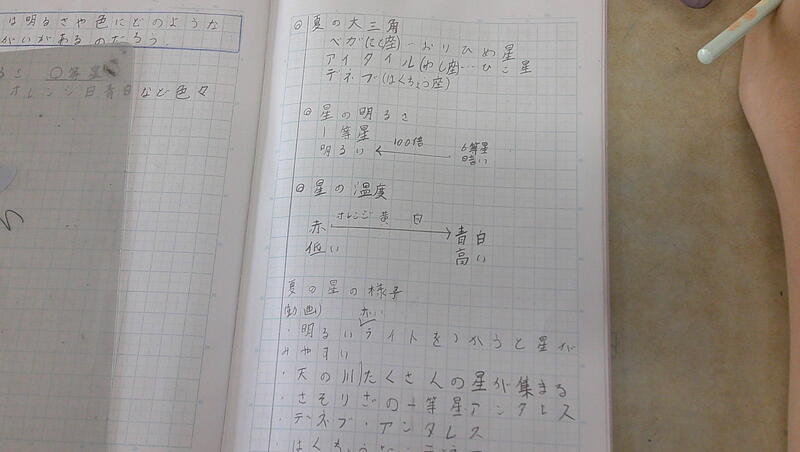 は明るさや色にどのような
がいがあるのだろう
るさ 〇等星
オレンジ白青白など色々
◎夏の大三角
ベガ(こと座)…おりひめ星
アイタイル(わし座)…ひこ星
デネブ(はくちょう座)
◎星の明るさ
1等星
100倍
6等星
明るい
暗い
◎星の温度
オレンジ 黄 白
赤
青白
低い
高い
夏の星の様子
(動画)
赤い
・明るいライトをつかうと星が
みやすい
・天の川たくさんの星が集まる
・さそりざの一等星アンタレス
・デネブ・アンタレス